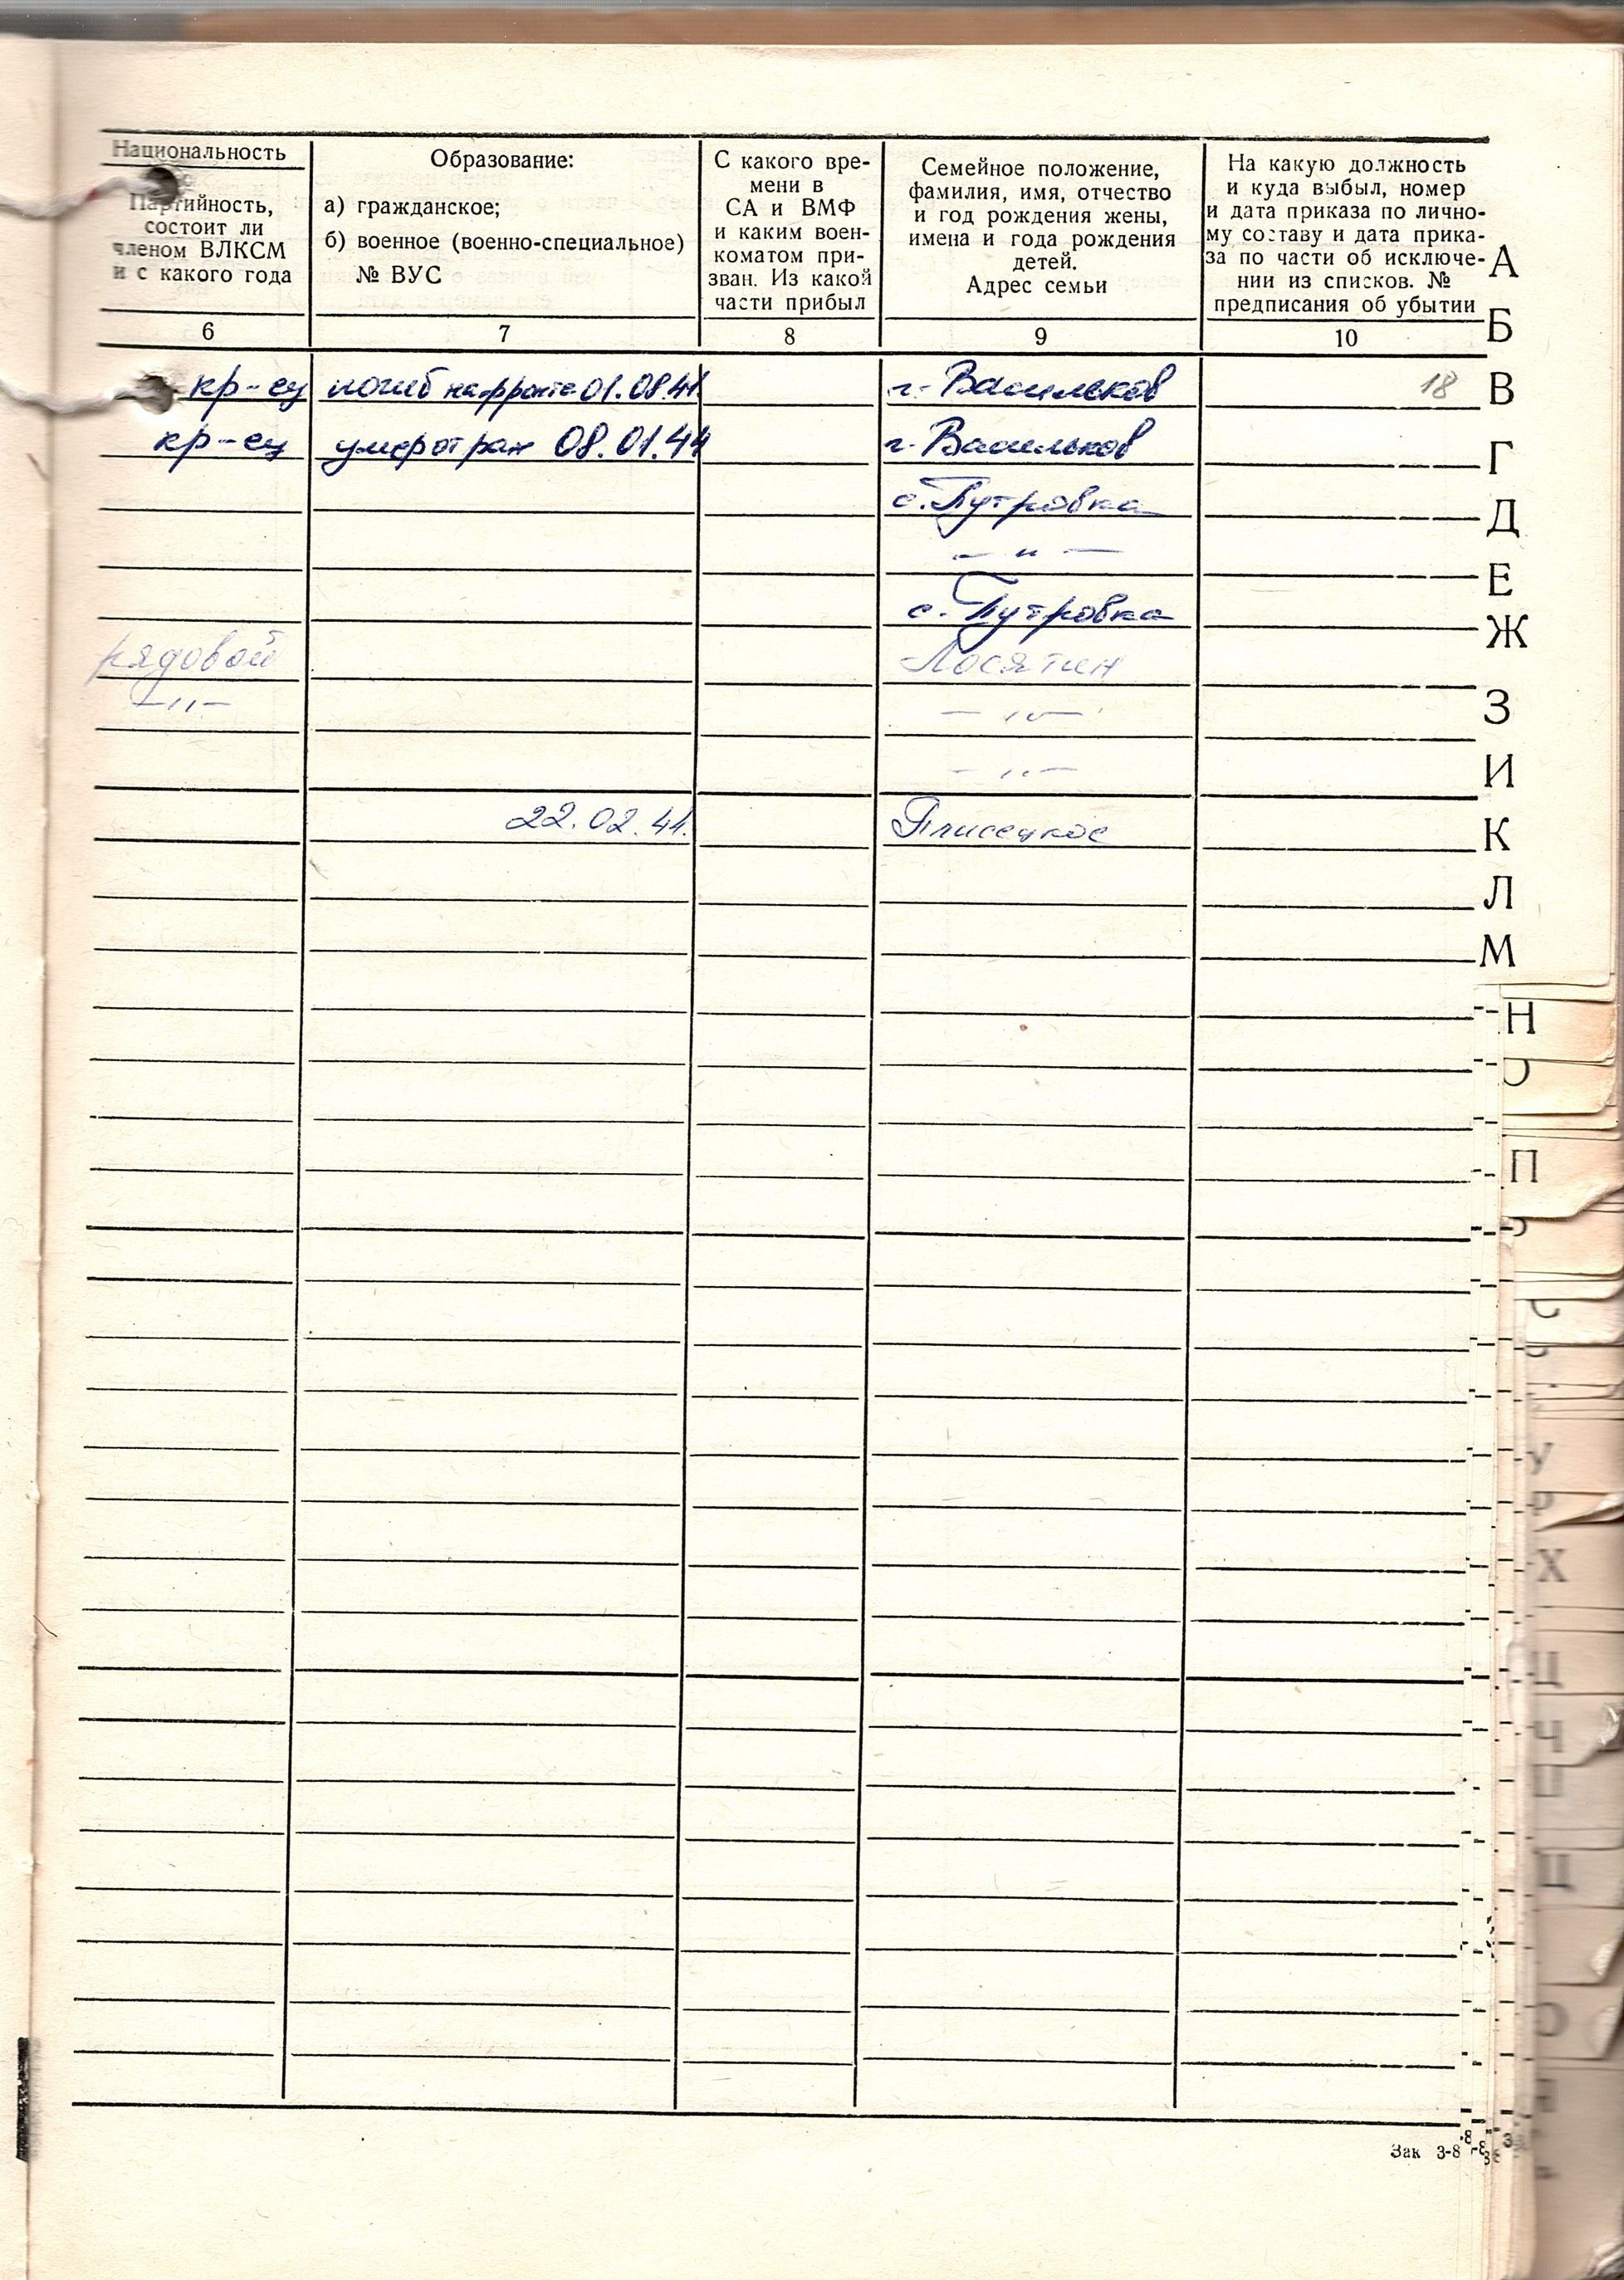 Национальность
Партийность,
состоит ли
членом ВЛКСМ
и с какого года
Образование:
а) гражданское;
б) военное (военно-специальное)
№ ВУС
С какого вре-
мени в
СА и ВМФ
и каким воен-
коматом при-
зван. Из какой
части прибыл
Семейное положение,
фамилия, имя, отчество
и год рождения жены,
имена и года рождения
детей.
Адрес семьи
На какую должность
и куда выбыл, номер
и дата приказа по лично-
му составу и дата прика-
за по части об исключе-
нии из списков. №
предписания об убытии
6 7 8 9 10
кр-ец погиб на фронте 01.08.41. г. Васильков 18
кр-ец умер от ран 08.01.44 г. Васильков
с. Путровка
— " —
с. Путровка
рядовой Лосятин
— " — — " —
— " —
22.02.44. Плисецкое
А
Б
В
Г
Д
Е
Ж
З
И
К
Л
М
Н
О
П
Р
С
У
Х
Ц
Ч
Зак 3-8